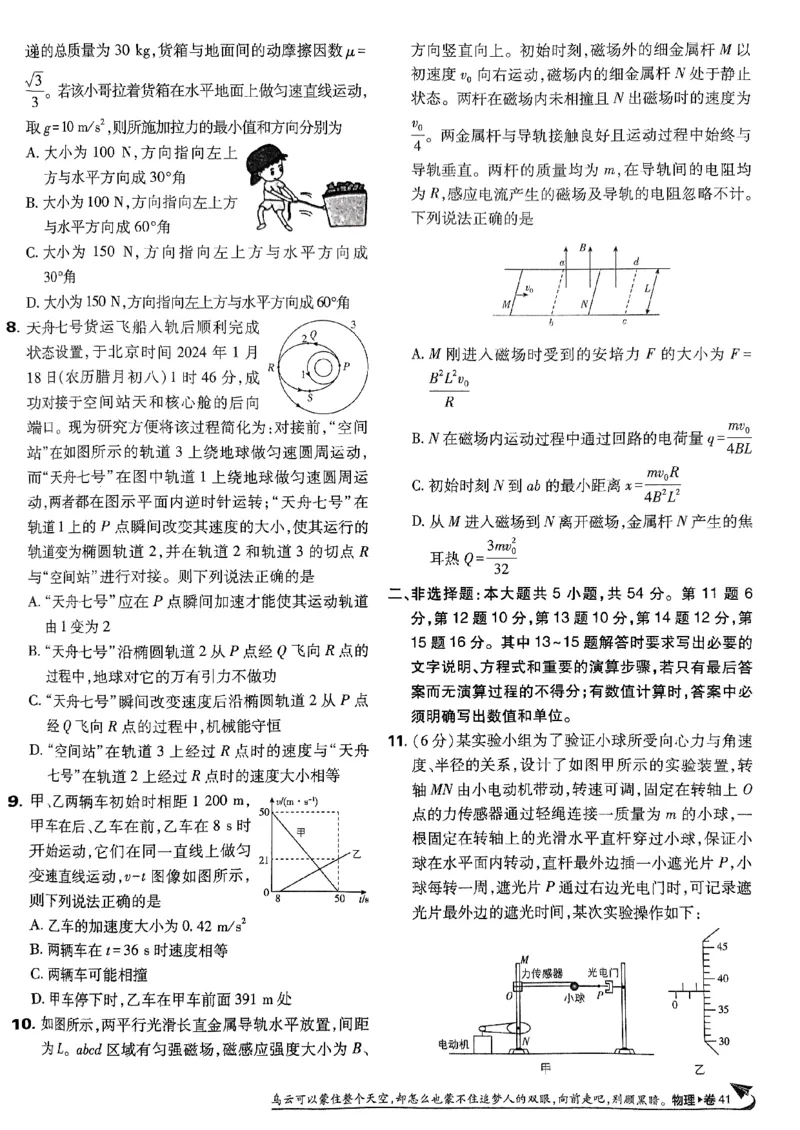 递的总质量为 30 kg,货箱与地面间的动摩擦因数 μ=
√3/3。若该小哥拉着货箱在水平地面上做匀速直线运动,
取 g=10 m/s²,则所施加拉力的最小值和方向分别为
A. 大小为 100 N,方向指向左上
方与水平方向成30°角
B. 大小为100 N,方向指向左上方
与水平方向成60°角
C. 大小为 150 N,方向指向左上方与水平方向成
30°角
D. 大小为150 N,方向指向左上方与水平方向成60°角
8. 天舟七号货运飞船入轨后顺利完成
状态设置,于北京时间 2024 年 1 月
18日(农历腊月初八)1 时 46 分,成
功对接于空间站天和核心舱的后向
端口。现为研究方便将该过程简化为:对接前,“空间
站”在如图所示的轨道 3 上绕地球做匀速圆周运动,
而“天舟七号”在图中轨道 1 上绕地球做匀速圆周运
动,两者都在图示平面内逆时针运转;“天舟七号”在
轨道1上的 P 点瞬间改变其速度的大小,使其运行的
轨道变为椭圆轨道 2,并在轨道 2 和轨道 3 的切点 R
与“空间站”进行对接。则下列说法正确的是
A. “天舟七号”应在 P 点瞬间加速才能使其运动轨道
由1变为2
B. “天舟七号”沿椭圆轨道 2 从 P 点经 Q 飞向 R 点的
过程中,地球对它的万有引力不做功
C. “天舟七号”瞬间改变速度后沿椭圆轨道 2 从 P 点
经 Q 飞向 R 点的过程中,机械能守恒
D. “空间站”在轨道 3 上经过 R 点时的速度与“天舟
七号”在轨道 2 上经过 R 点时的速度大小相等
3
2 Q
R
P
1
S
9. 甲、乙两辆车初始时相距 1 200 m,
甲车在后、乙车在前,乙车在 8 s 时
开始运动,它们在同一直线上做匀
变速直线运动,v-t 图像如图所示,
则下列说法正确的是
A. 乙车的加速度大小为 0. 42 m/s²
B. 两辆车在 t=36 s 时速度相等
C. 两辆车可能相撞
D. 甲车停下时,乙车在甲车前面 391 m 处
v/(m·s⁻¹)
50
甲
21
乙
0
8
50
t/s
10. 如图所示,两平行光滑长直金属导轨水平放置,间距
为 L。abcd 区域有匀强磁场,磁感应强度大小为 B、
方向竖直向上。初始时刻,磁场外的细金属杆 M 以
初速度 v₀ 向右运动,磁场内的细金属杆 N 处于静止
状态。两杆在磁场内未相撞且 N 出磁场时的速度为
v₀/4。两金属杆与导轨接触良好且运动过程中始终与
导轨垂直。两杆的质量均为 m,在导轨间的电阻均
为 R,感应电流产生的磁场及导轨的电阻忽略不计。
下列说法正确的是
B
a
d
v₀
L
M
N
b
c
A. M 刚进入磁场时受到的安培力 F 的大小为 F=
B²L²v₀/R
B. N 在磁场内运动过程中通过回路的电荷量 q=mv₀/4BL
C. 初始时刻 N 到 ab 的最小距离 x=mv₀R/4B²L²
D. 从 M 进入磁场到 N 离开磁场,金属杆 N 产生的焦
耳热 Q=3mv₀²/32
二、非选择题:本大题共 5 小题,共 54 分。第 11 题 6
分,第 12 题 10 分,第 13 题 10 分,第 14 题 12 分,第
15 题 16 分。其中 13~15 题解答时要求写出必要的
文字说明、方程式和重要的演算步骤,若只有最后答
案而无演算过程的不得分;有数值计算时,答案中必
须明确写出数值和单位。
11. (6 分)某实验小组为了验证小球所受向心力与角速
度、半径的关系,设计了如图甲所示的实验装置,转
轴 MN 由小电动机带动,转速可调,固定在转轴上 O
点的力传感器通过轻绳连接一质量为 m 的小球,一
根固定在转轴上的光滑水平直杆穿过小球,保证小
球在水平面内转动,直杆最外边插一小遮光片 P,小
球每转一周,遮光片 P 通过右边光电门时,可记录遮
光片最外边的遮光时间,某次实验操作如下:
M
力传感器
光电门
O
小球
P
电动机
N
甲
45
40
35
30
0
乙
乌云可以蒙住整个天空,却怎么也蒙不住追梦人的双眼,向前走吧,别顾黑暗。物理▶卷 41